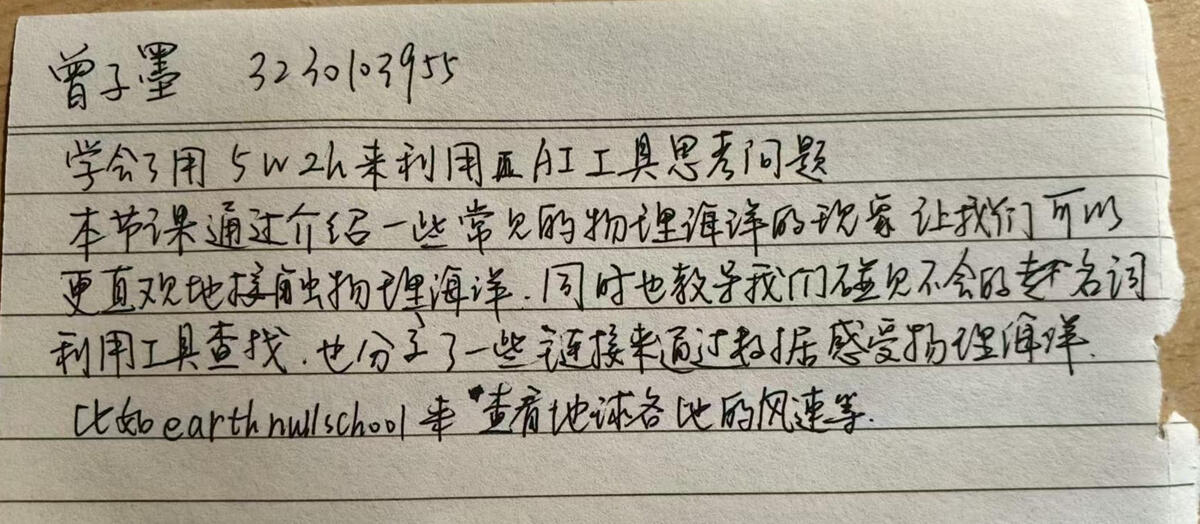 曾子墨 3230103955
学会了用5W2h来利用AI工具思考问题
本节课通过介绍一些常见的物理海洋的现象让我们可以
更直观地接触物理海洋.同时也教导我们碰见不会的名词
利用工具查找.也分享了一些链接来通过数据感受物理海洋.
比如earth nullschool来查看地球各地的风速等.